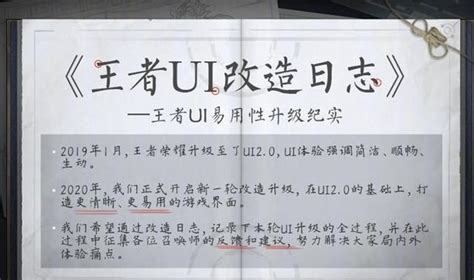 《王者UI改造日志》
—王者UI易用性升级纪实
2019年1月,王者荣耀升级至了UI2.0,UI体验强调简洁、顺畅、
生动。
2020年,我们正式开启新一轮改造升级,在UI2.0的基础上,打
造更清晰、更易用的游戏界面。
我们希望通过改造日志,记录下本轮UI升级的全过程,并在此
过程中征集各位召唤师的反馈和建议,努力解决大家局内外
体验痛点。